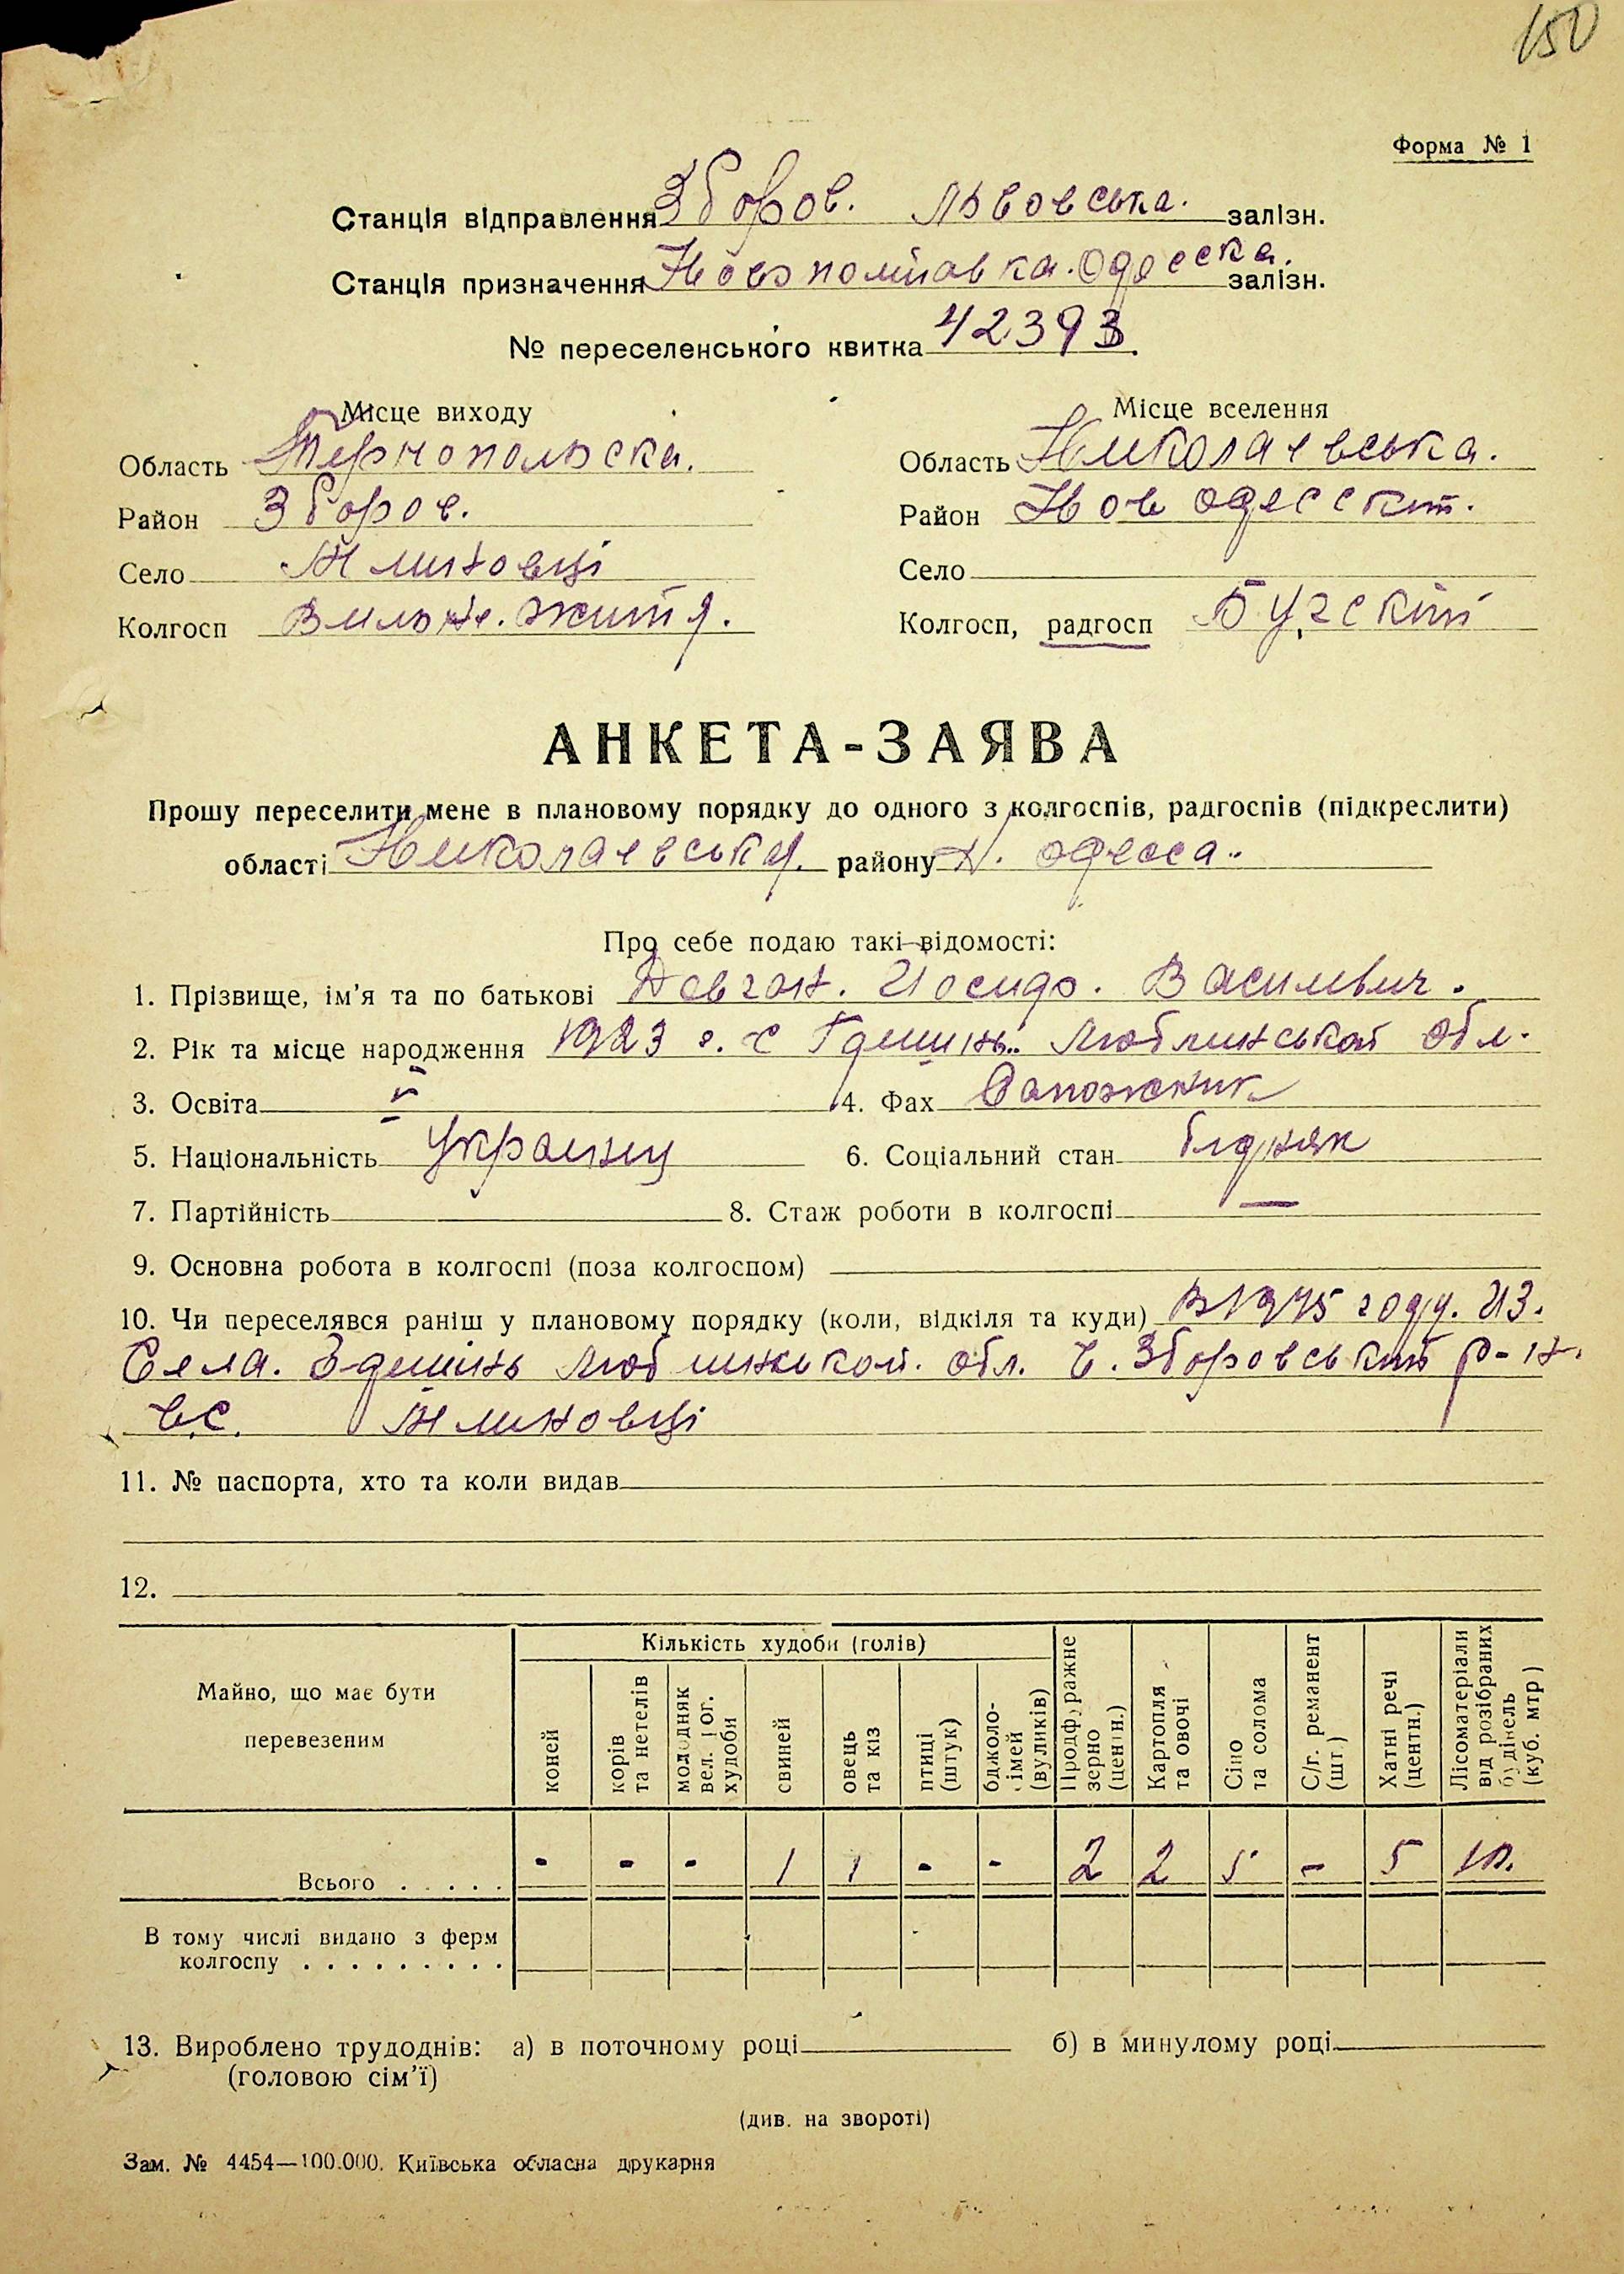 150
Форма № 1
Станція відправлення Зборов. Львовська. залізн.
Станція призначення Новополтавка. Одесска. залізн.
№ переселенського квитка 42393
Місце виходу
Область Тернопольска.
Район Зборов.
Село Млиновці
Колгосп Вильне. життя.
Місце вселення
Область Николаевська.
Район Нов одесскит.
Село
Колгосп, радгосп Бугскит
АНКЕТА-ЗАЯВА
Прошу переселити мене в плановому порядку до одного з колгоспів, радгоспів (підкреслити)
області Николаевська. району Н. одесса..
Про себе подаю такі відомості:
1. Прізвище, ім’я та по батькові Довган. Иосидо. Василевич.
2. Рік та місце народження 1923 г. с Гдешинь.. Люблинськой обл.
3. Освіта 4. Фах Сапожник
5. Національність Украинец 6. Соціальний стан бідняк
7. Партійність 8. Стаж роботи в колгоспі —
9. Основна робота в колгоспі (поза колгоспом)
10. Чи переселявся раніш у плановому порядку (коли, відкіля та куди) В 1945 году. Из.
Села. Здешинь Люблинськой. обл. в. Зборовський р-н.
в.с. Млиновці
11. № паспорта, хто та коли видав
12.
Майно, що має бути перевезеним
Кількість худоби (голів)
коней
корів та нетелів
молодняк вел. рог. худоби
свиней
овець та кіз
птиці (штук)
бджоло-сімей (вуликів)
Продфуражне зерно (центн.)
Картопля та овочі
Сіно та солома
С/г. реманент (шт.)
Хатні речі (центн.)
Лісоматеріали від розібраних будівель (куб. мтр)
Всього . . . . . - - - 1 1 - - 2 2 5 - 5 10.
В тому числі видано з ферм
колгоспу . . . . . . . . .
13. Вироблено трудоднів: а) в поточному році б) в минулому році
(головою сім’ї)
(див. на звороті)
Зам. № 4454—100.000. Київська обласна друкарня